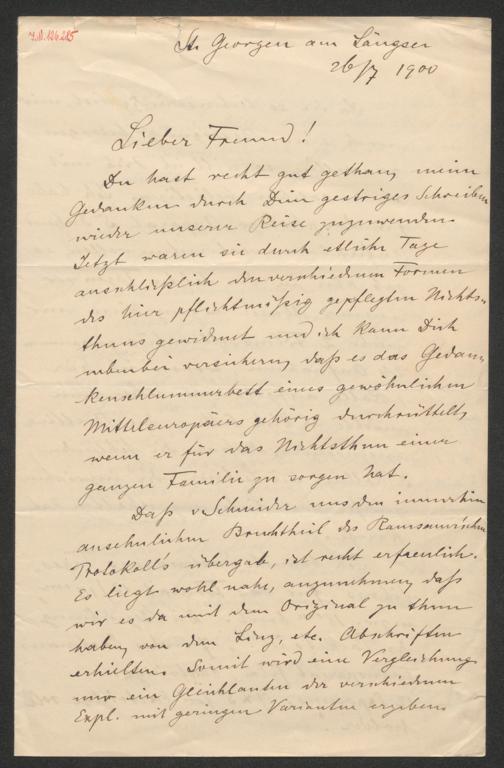 I.N. 126.285
St. Georgen am Längsee
26/7 1900
Lieber Freund!
Du hast recht gut gethan, meine
Gedanken durch Dein gestriges Schreiben
wieder unserer Reise zuzuwenden.
Jetzt waren sie durch etliche Tage
ausschließlich den verschiedenen Formen
des hier pflichtmäßig gepflegten Nichts-
thuns gewidmet und ich kann Dich
nebenbei versichern, daß es das Gedan-
kenschlummerbett eines gewöhnlichen
Mitteleuropäers gehörig durchrüttelt,
wenn er für das Nichtsthun einer
ganzen Familie zu sorgen hat.
Daß v Schneider uns den immerhin
ansehnlichen Bruchtheil des Ramsauer'schen
Protokoll's übergab, ist recht erfreulich.
Es liegt wohl nahe, anzunehmen, daß
wir es da mit dem Original zu thun
haben, von dem Linz, etc. Abschriften
erhielten. Somit wird eine Vergleichung
nur ein Gleichlauten der verschiedenen
Expl. mit geringen Varianten ergeben.